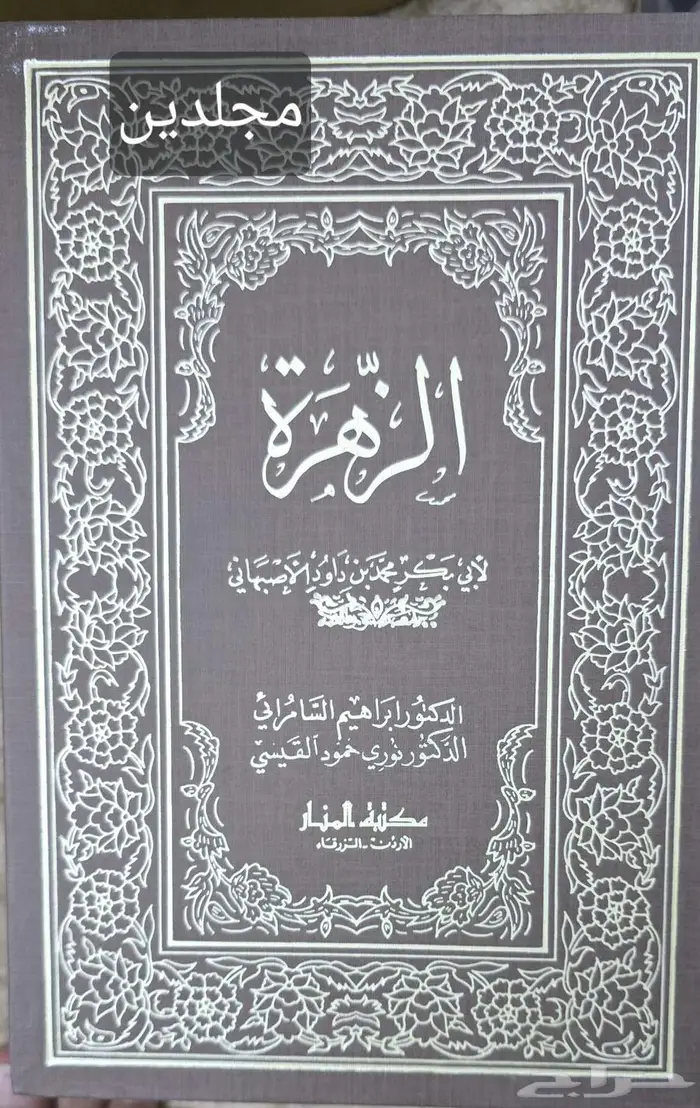 مجلدين
الزّهرة
لأبي بكر محمد بن داود الأصبهاني
الدكتور ابراهيم السامرائي
الدكتور نوري حمود القيسي
مكتبة المنار
الأردن - الزرقاء
حراج